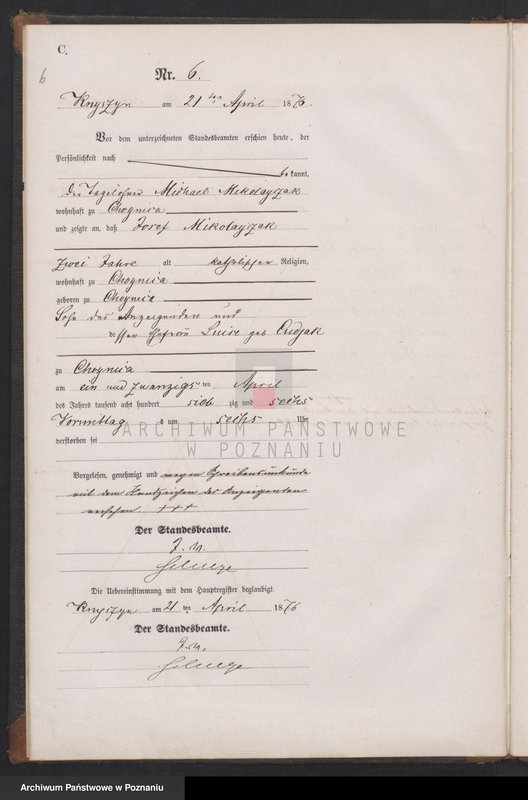 C.
6
Nr. 6.
Knyszyn am 21 ten April 1876.
Vor dem unterzeichneten Standesbeamten erschien heute, der
Persönlichkeit nach
bekannt,
Der Tagelöhner Michael Mikolayczak
wohnhaft zu Choynica
und zeigte an, daß Josef Mikolayczak
Zwei Jahre alt katholischer Religion,
wohnhaft zu Choynica
geboren zu Choynica
Sohn des Anzeigenden und
dessen Ehefrau Luise geb
zu Choynica
am ein und zwanzigsten April
des Jahres tausend acht hundert siebzig und sechs
Vormittags um sechs Uhr
verstorben sei
ARCHIWUM PAŃSTWOWE
W POZNANIU
Vorgelesen, genehmigt und wegen Schreibensunkunde
mit dem Handzeichen des Anzeigenden
versehen. +++
Der Standesbeamte.
Die Uebereinstimmung mit dem Hauptregister beglaubigt
Knyszyn am 21 ten April 1876
Der Standesbeamte.
Archiwum Państwowe w Poznaniu